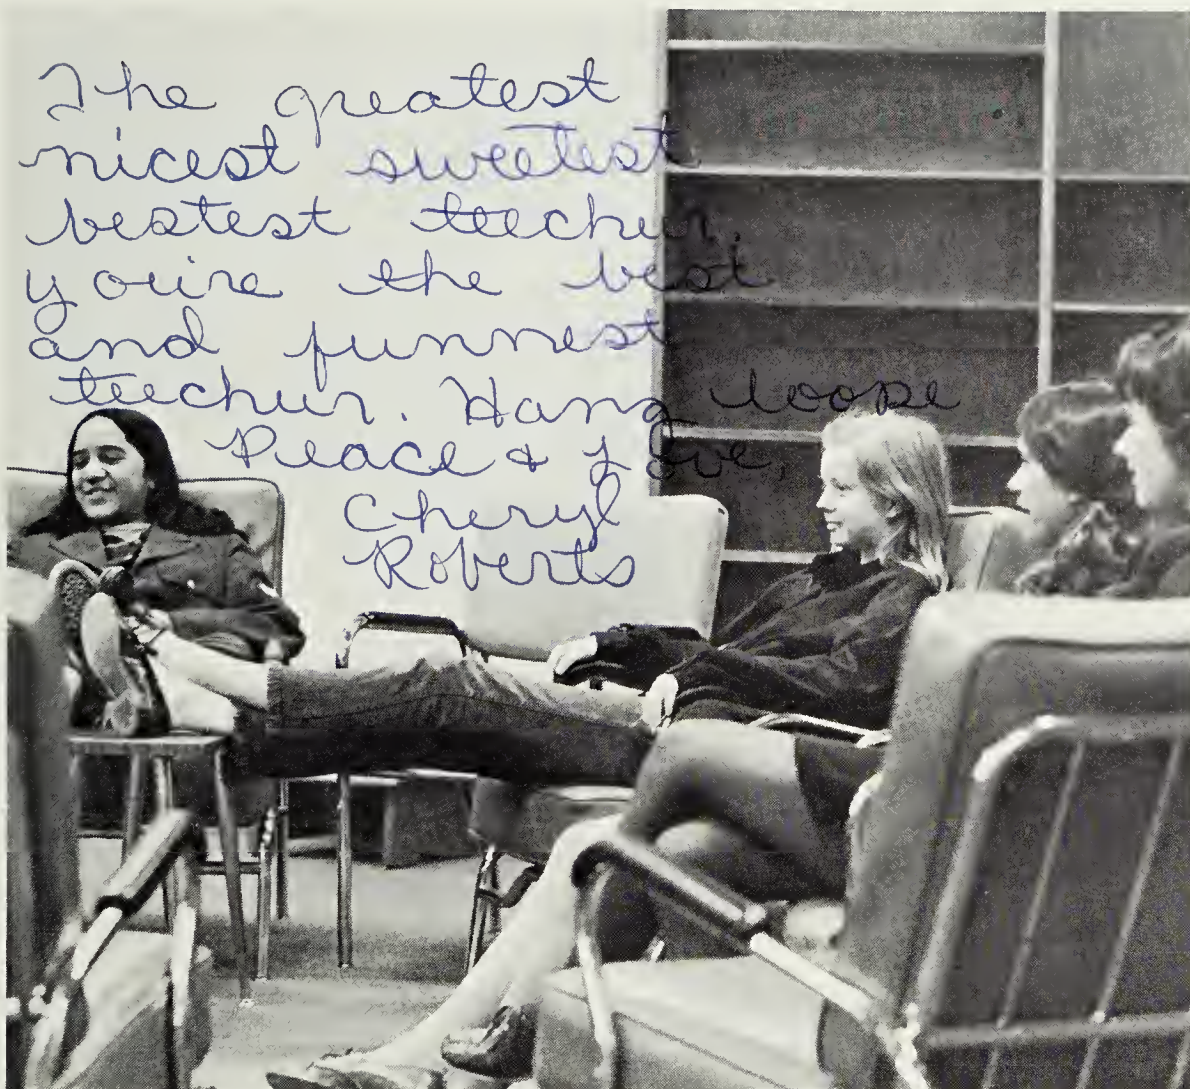 The greatest
nicest sweetest
bestest teechur.
you're the best
and funnest
teechur. Hang loose
Peace & Love,
Cheryl
Roberts